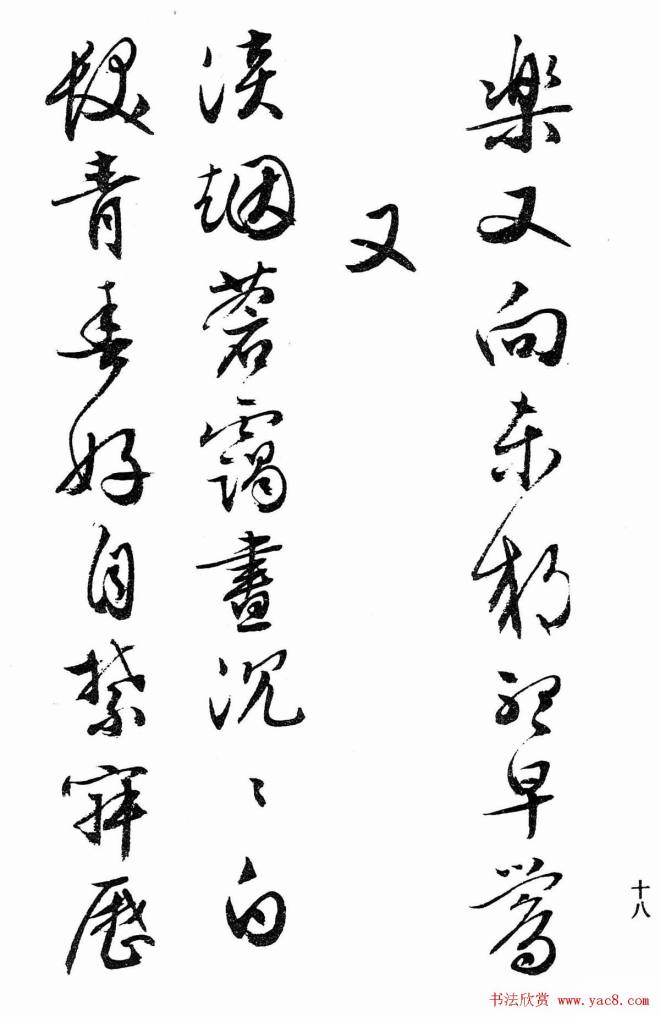 樂又向東聽早鶯
又
淡烟蒼靄晝沉〻白
髮青春好自禁寂歷
十八
书法欣赏 www.yac8.com